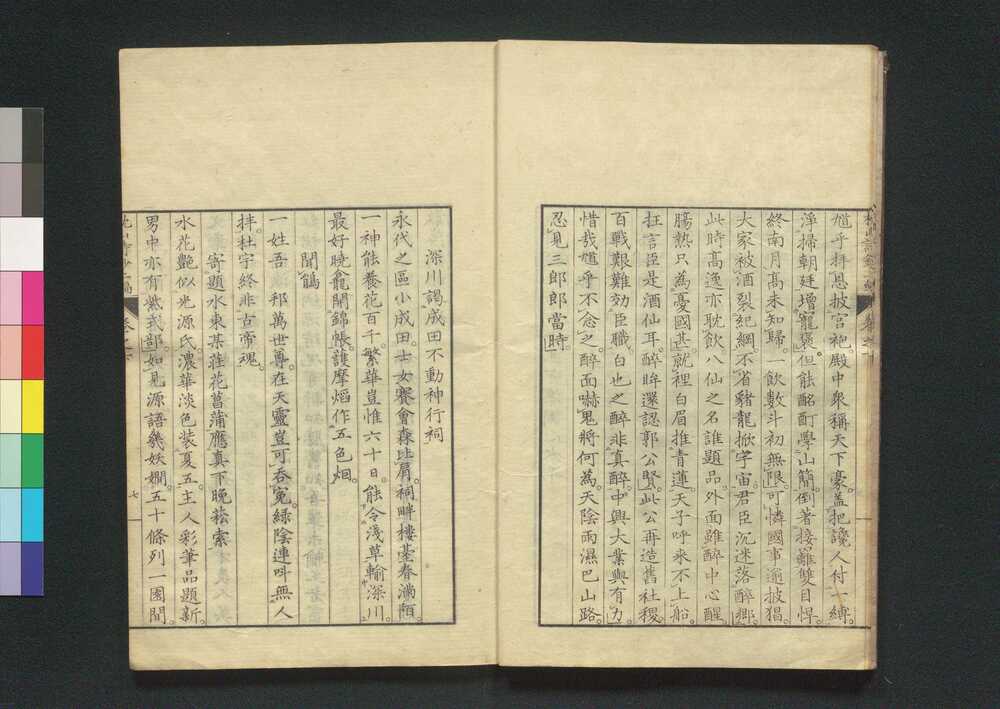 馗乎拝恩披宮袍殿中衆稱天下豪盖把讒人付一縛
浮掃朝廷增寵褒但能酩酊學山簡倒著接䍦雙目悍
終南月高未知歸一飲數斗初無限可憐國事遍披猖
大家被酒裂紀綱不省豬龍掀宇宙君臣沉迷落醉鄉
此時高逸亦耽飲八仙之名誰題品外面雖醉中心醒
腸熱只為憂國甚就裡白眉推青蓮天子呼來不上船
狂言臣是酒仙耳醉眸還認郭公賢此公再造舊社稷
百戰艱難効臣職白也之醉非真醉中興大業與有力
惜哉馗乎不念之醉面嚇鬼將何為天陰雨濕巴山路
忍見三郎郎當時
深川謁成田不動神行祠
永代之區小成田士女賽會森比肩祠畔樓臺春滿陌
一神能養花百千繁華豈惟六十日能令淺草輸深川
最好曉龕開錦帳護摩熖作五色烟
聞鵑
一姓吾邦萬世尊在天靈豈可吞冤綠陰連叫無人
拝杜宇終非古帝魂
寄題水東某荘花菖蒲應真下晚菘索
水花艷似光源氏濃華淡色裝夏五主人彩筆品題新
男中亦有紫式部如見源語幾妖嫺五十條列一園間
七